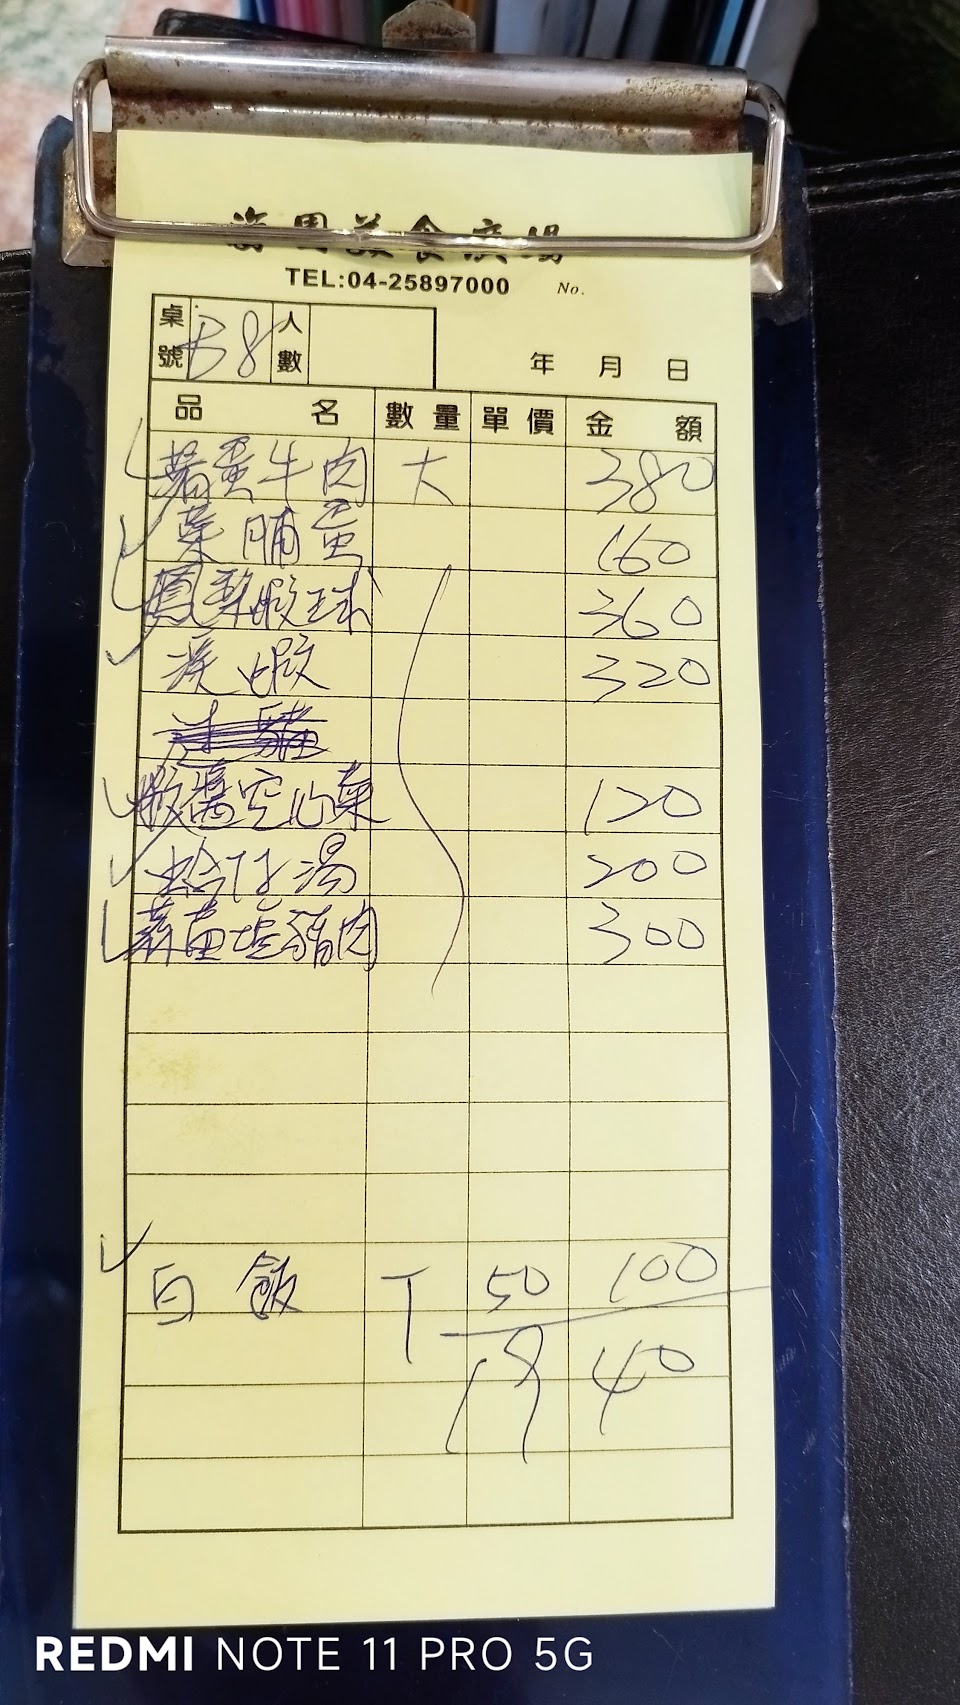 美食廣場
TEL:04-25897000 No.
桌號 B8 人數 年 月 日
品名 數量 單價 金額
蛋牛肉 大 380
菜脯蛋 160
鳳梨蝦球 360
溪蝦 320
蝦醬空心菜 120
蛤仔湯 200
蒜苗塩豬肉 300
白飯 T 50 100
1940
REDMI NOTE 11 PRO 5G